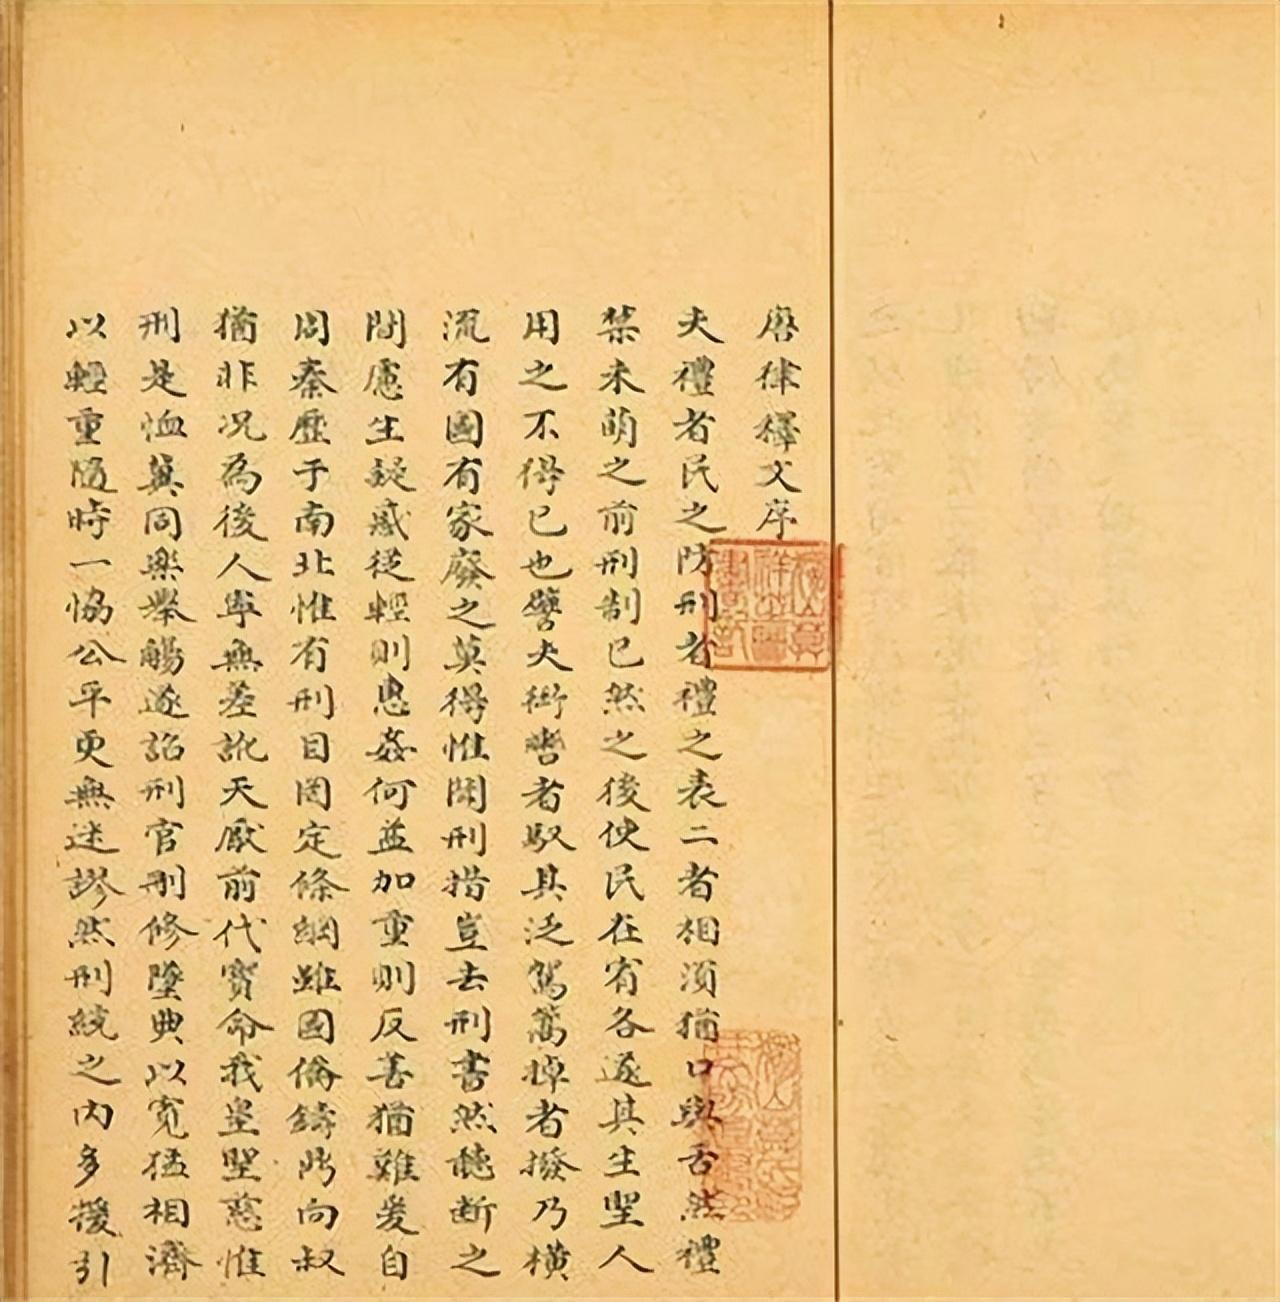 唐律釋文序
夫禮者民之防刑者禮之表二者相須猶口與舌然禮
禁未萌之前刑制已然之後使民在宥各遂其生聖人
用之不得已也譬夫銜轡者馭其泛駕篙棹者撥乃橫
流有國有家廢之莫得惟聞刑措豈去刑書然聽斷之
間慮生疑惑從輕則惠姦何益加重則反善猶難爰自
周秦歷于南北惟有刑目罔定條綱雖國僑鑄於向叔
猶非况為後人寧無差訛天厭前代寶命我皇聖慈惟
刑是恤冀同樂舉觴遂詔刑官刪修墮典以寬猛相濟
以輕重隨時一恊公平更無迷謬然刑統之內多援引